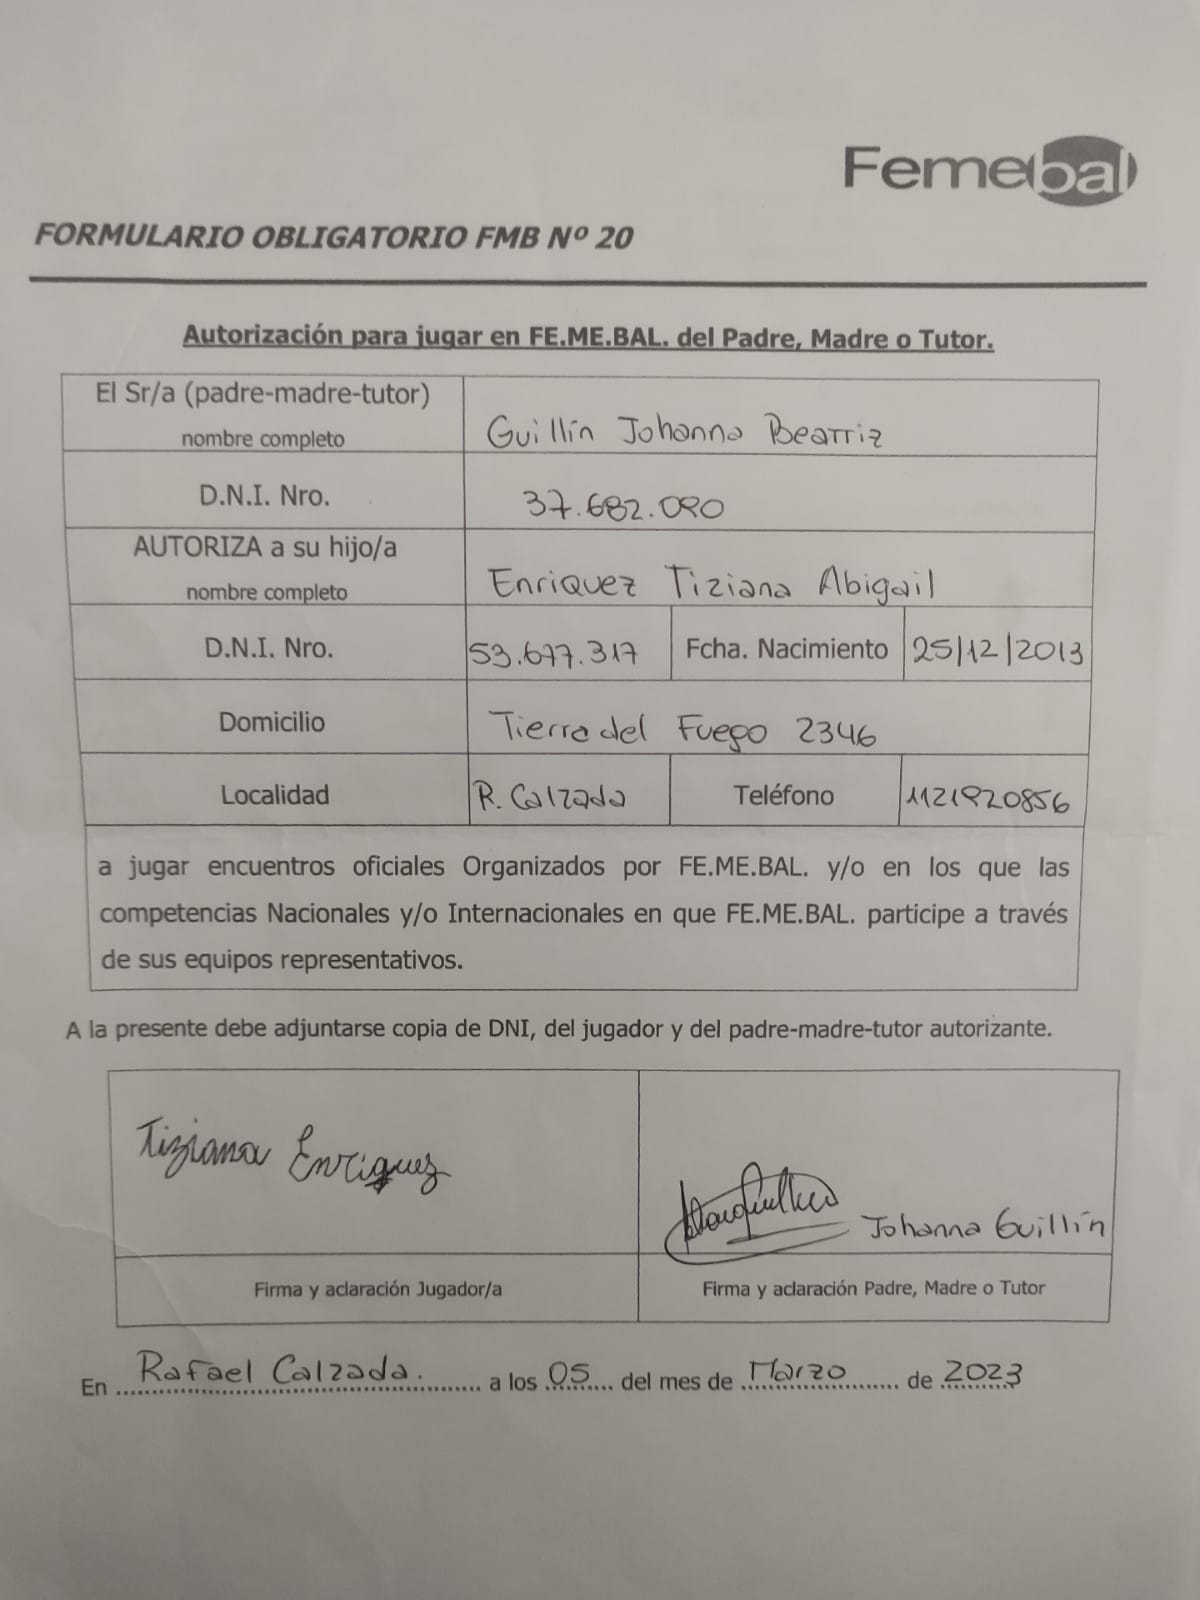 Femebal
FORMULARIO OBLIGATORIO FMB Nº 20
Autorización para jugar en FE.ME.BAL. del Padre, Madre o Tutor.
El Sr/a (padre-madre-tutor)
nombre completo
Guillín Johanna Beatriz
D.N.I. Nro.
37.682.090
AUTORIZA a su hijo/a
nombre completo
Enriquez Tiziana Abigail
D.N.I. Nro.
53.677.317
Fcha. Nacimiento
25/12/2013
Domicilio
Tierra del Fuego 2346
Localidad
R. Calzada
Teléfono
1121920856
a jugar encuentros oficiales Organizados por FE.ME.BAL. y/o en los que las
competencias Nacionales y/o Internacionales en que FE.ME.BAL. participe a través
de sus equipos representativos.
A la presente debe adjuntarse copia de DNI, del jugador y del padre-madre-tutor autorizante.
Tiziana Enriquez
Johanna Guillín
Firma y aclaración Jugador/a
Firma y aclaración Padre, Madre o Tutor
En Rafael Calzada. a los 05 del mes de Marzo de 2023